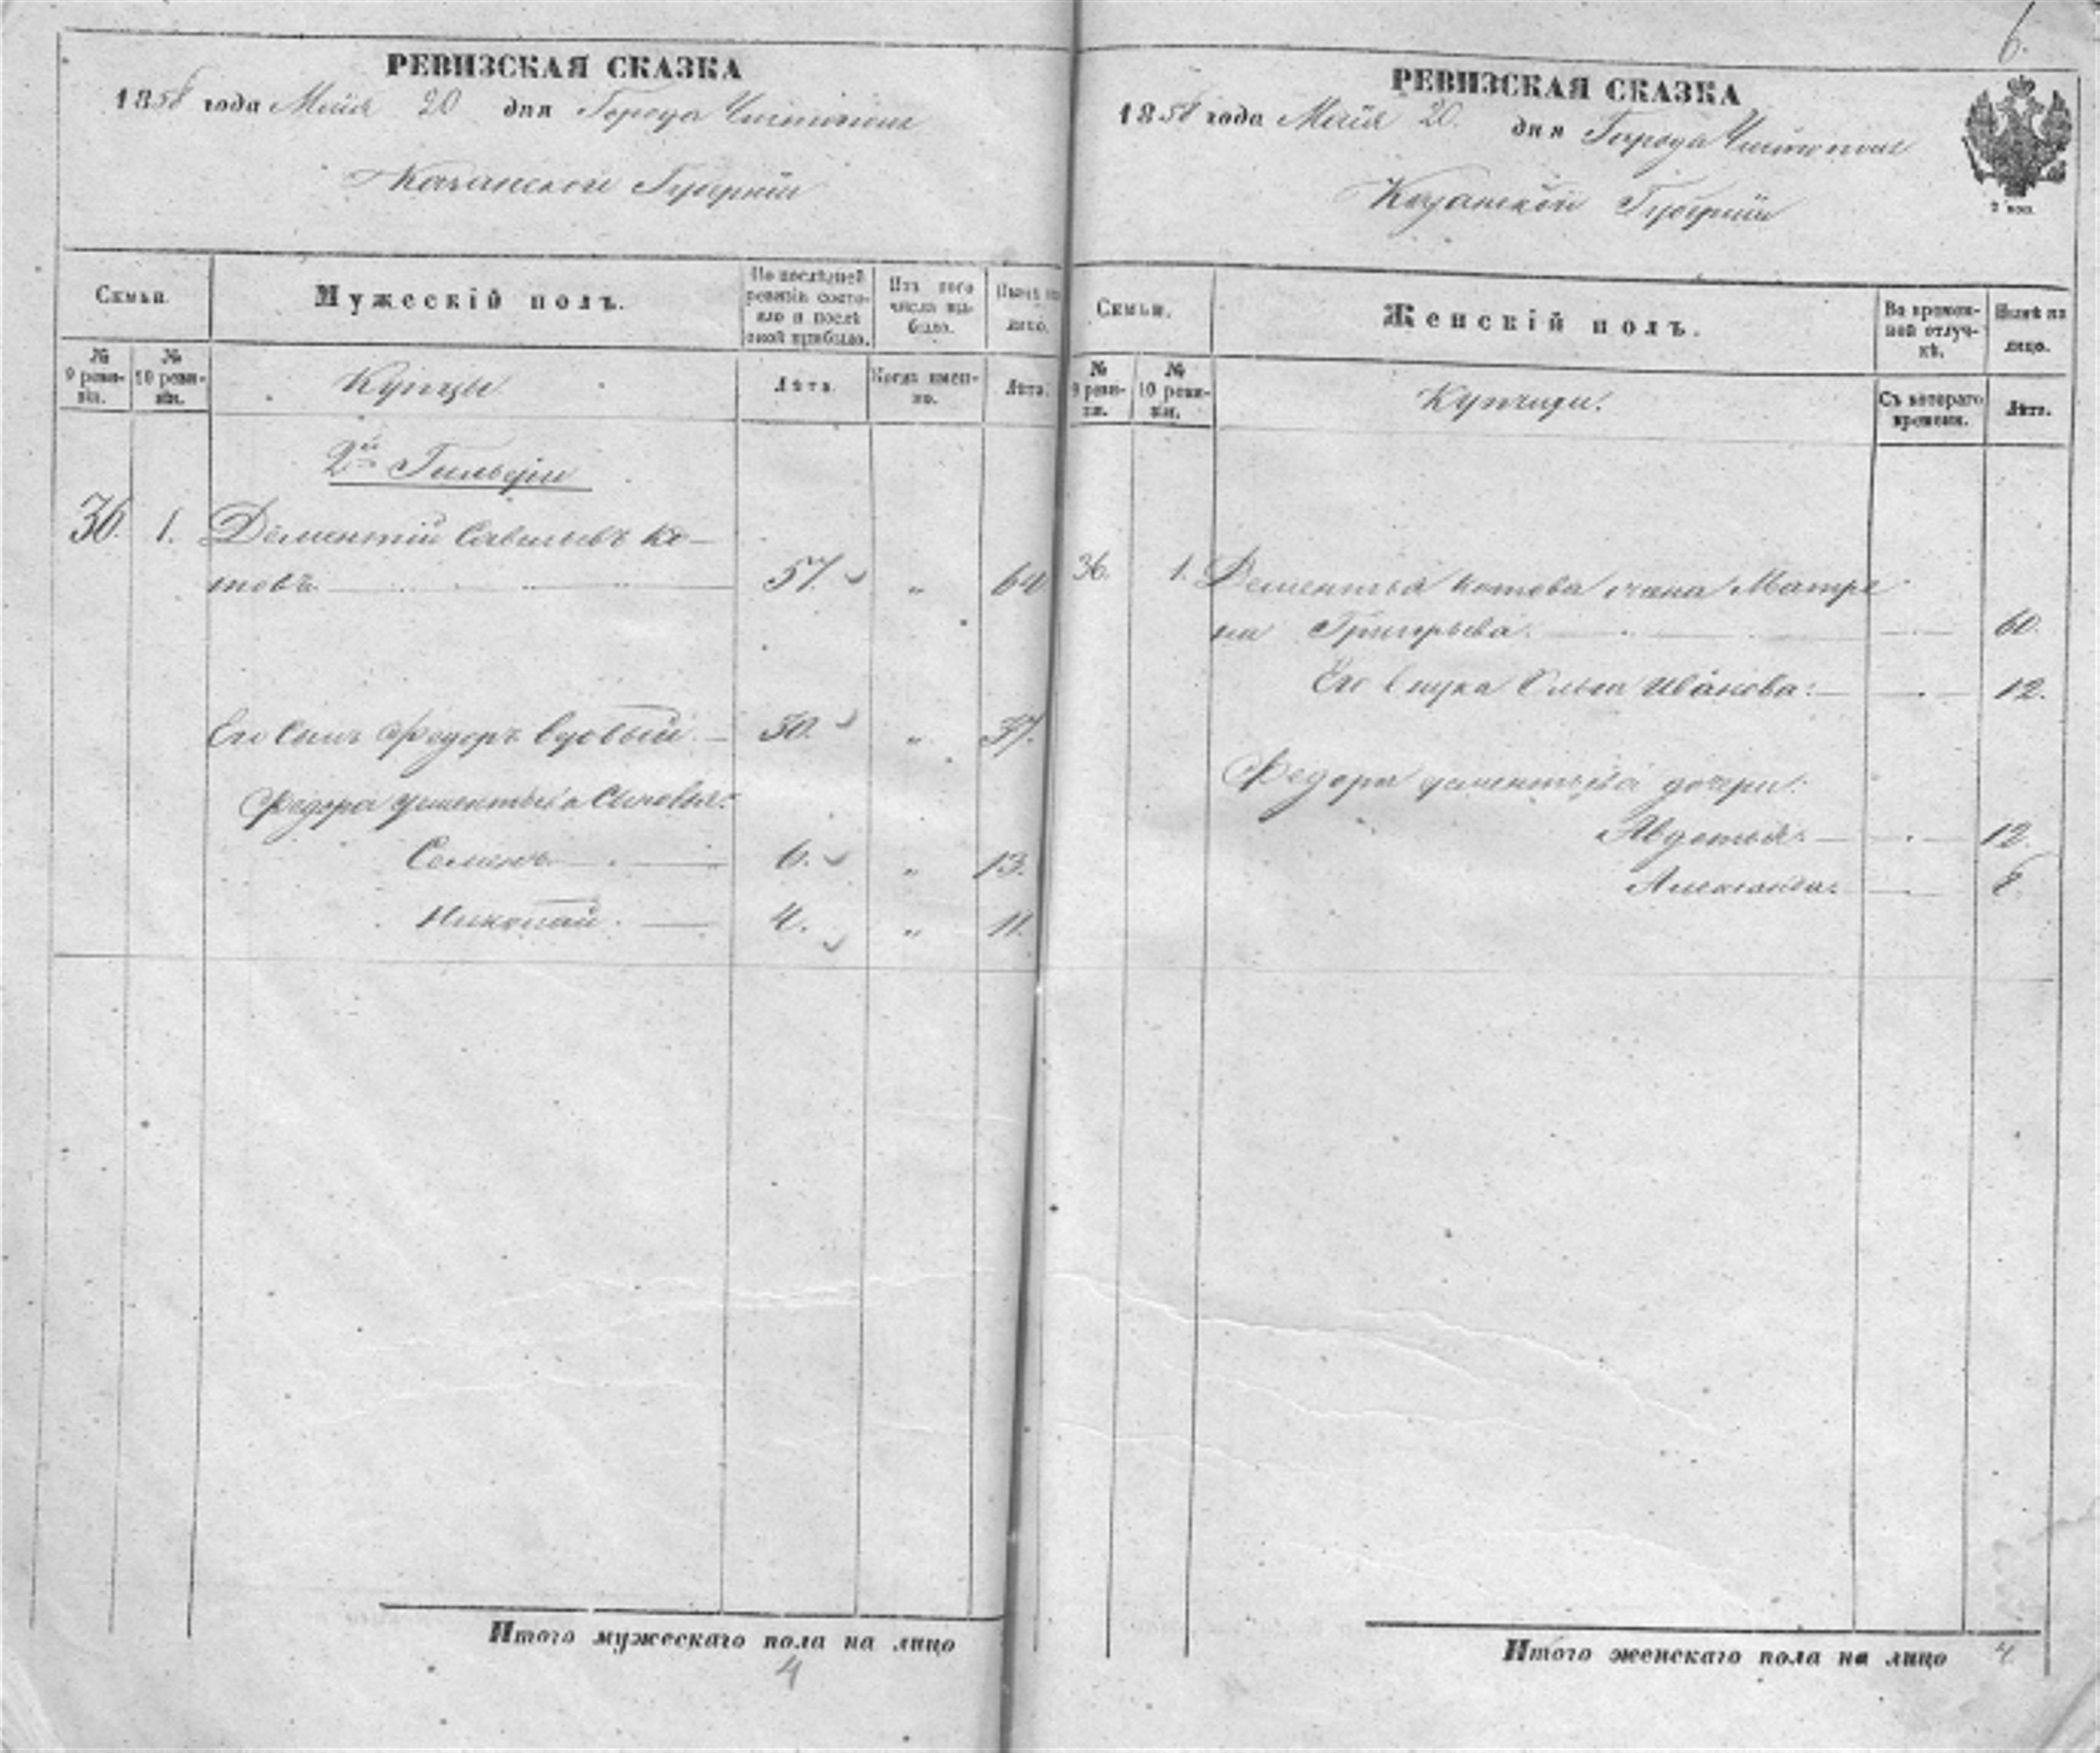 РЕВИЗСКАЯ СКАЗКА
1858 года Маія 20 дня Города Чистополя
Казанской Губерніи
Семьи.
Мужескій полъ.
По послѣдней ревизіи состояло и послѣ оной прибыло.
Изъ того числа выбыло.
Нынѣ на лицо.
№ 9 ревизіи.
№ 10 ревизіи.
Купцы
Лѣта.
Когда именно.
Лѣта.
2й Гильдіи
36. 1. Дементій Савельевъ Ко-
товъ 57. " 64
Его Сынъ Федоръ вдовый 30. " 37.
Федора Дементьева Сыновья:
Семенъ 6. " 13.
Николай. 4. " 11.
Итого мужескаго пола на лицо
4
6.
РЕВИЗСКАЯ СКАЗКА
1858 года Маія 20. дня Города Чистополя
Казанской Губерніи
2 коп.
Семьи.
Женскій полъ.
Во временной отлучкѣ.
Нынѣ на лицо.
№ 9 ревизіи.
№ 10 ревизіи.
Купчихи.
Съ котораго времени.
Лѣта.
36. 1. Дементья Котова жена Матре
на Григорьева. 60.
Его внука Ольга Иванова: 12.
Федора Дементьева дочери:
Авдотья: 12.
Александра: 8.
Итого женскаго пола на лицо 4